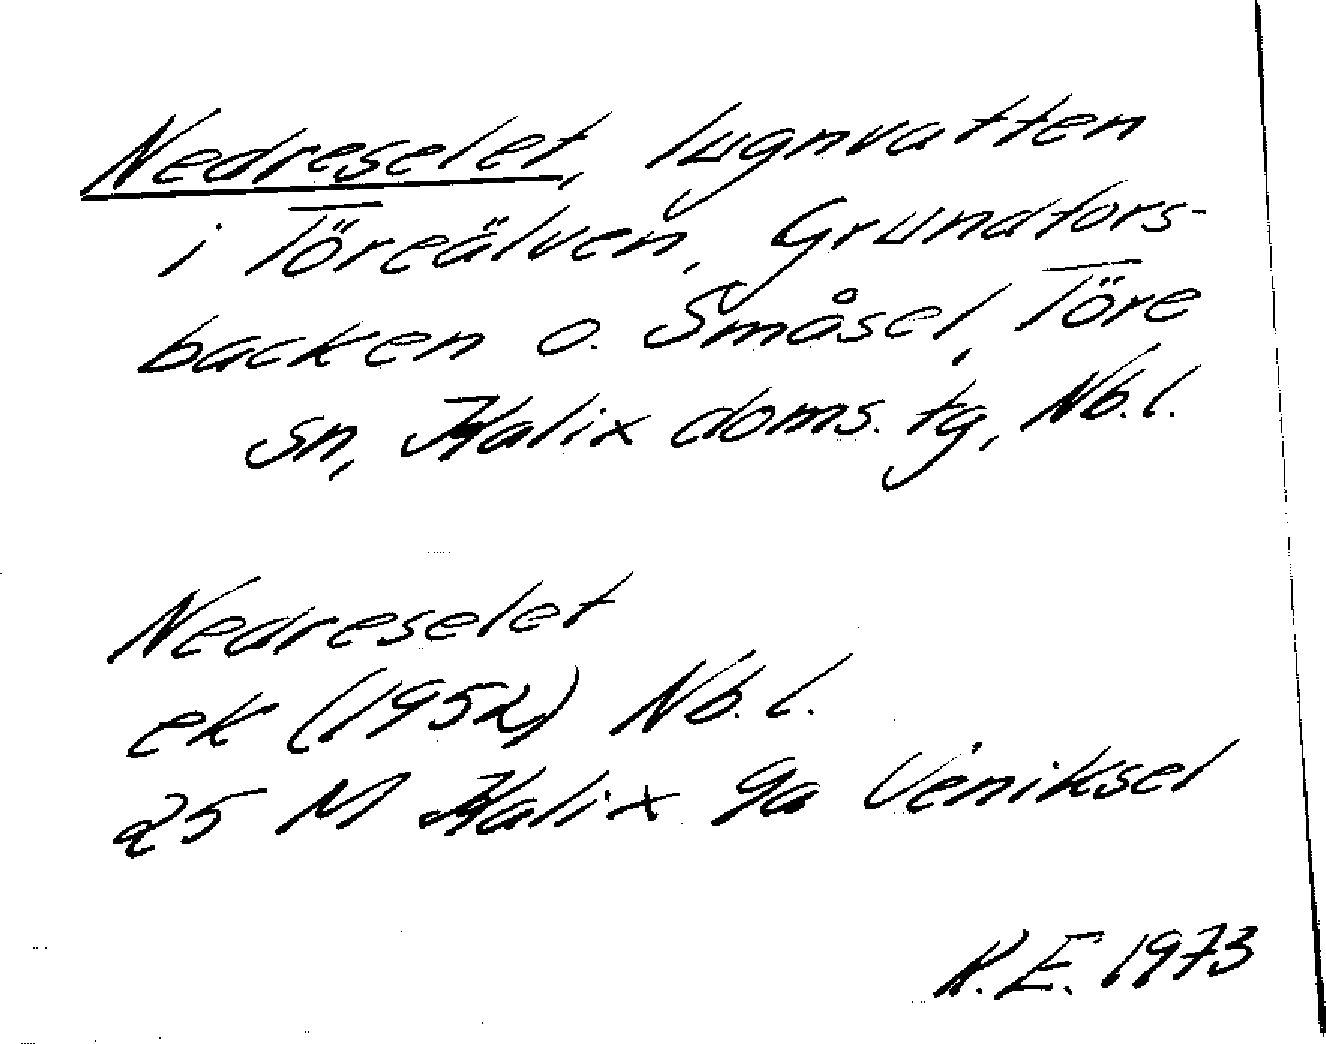 Nedreselet, lugnvatten
i Töreälven, Grundfors-
backen o. Småsel, Töre
sn, Kalix doms. tg, Nb.l.
Nedreselet
ek (1952) Nb.l.
25 M Kalix 9a Veniksel
K.E. 1973